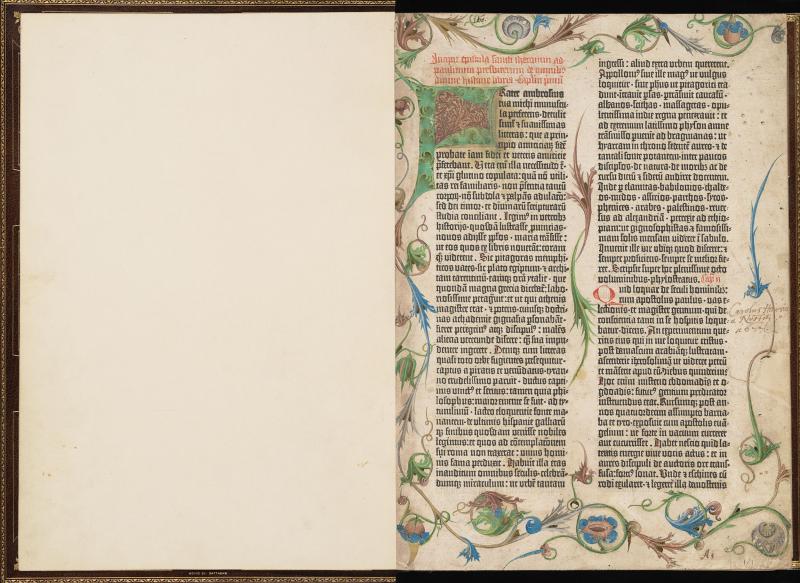 Incipit epistola sancti iheronimi ad
paulinum presbiterum de omnibus
divine historie libris · capitulū primū
Frater ambrosius
tua michi munuscu-
la perferens · detulit
simul ⁊ suavissimas
litteras: que a prin-
cipio amiciciarū · fidē
probate iam fidei et veteris amicicie
preferebant . Vera enī illa necessitudo ē ·
et xp̄i glutino copulata: quā nō utili-
tas rei familiaris · non presentia tantū
corporū · nō subdola ⁊ palpans adulacio:
sed dei timor · et divinarū scripturarū
studia conciliant . Legimus in veteribus
historijs · quosdā lustrasse provincias ·
novos adijsse populos · maria transisse:
ut eos quos ex libris noverant: coram
q̄ viderent . Sic pitagoras memphi-
ticos vates · sic plato egiptum · ⁊ archi-
tam tarentinū · eamq̄ oram ytalie · que
quondā magna grecia dicebat̄: labo-
riosissime peragravit: et ut qui athenis
magister erat · ⁊ potens · cuiusq̄ doctri-
nas achademie gignasia personabāt ·
fieret peregrinus atq̄ discipulus: malens
aliena verecunde discere: q̄ sua impu-
denter ingerere . Deniq̄ cum litteras
quasi toto orbe fugientes persequitur ·
captus a piratis et venūdatus · tyran-
no crudelissimo paruit · ductus capti-
vus vinctus et servus: tamen quia phi-
losophus: maior emente se fuit · ad ty-
tumlivium · lacteo eloquentie fonte ma-
nantem · de ultimis hispanie galliarū
q̄ finibus quosdam venisse nobiles
legimus: et quos ad cōtemplacionem
sui roma non traxerat: unius homi-
nis fama perduxit . Habuit illa etas
inauditum omnibus seculis · celebrā-
dumq̄ miraculum: ut urbē tantam
ingressi: aliud extra urbem quererent .
Apollonius sive ille magus ut vulgus
loquitur · sive phūs ut pitagorici tra-
dunt · intravit persas · pertrāsivit caucasū ·
albanos · scithas · massagetas · opu-
lentissima indie regna penetravit: et
ad extremum latissimo physon amne
transmisso pervenit ad bragmanas: ut
hyarcam in throno sedentē aureo · ⁊ de
tantali fonte potantem · inter paucos
discipulos · de natura · de moribus ac de
cursu dierū ⁊ siderū audiret docentem .
Inde per elamitas · babilonios · chalde-
os · medos · assirios · parthos · syros ·
phenices · arabes · palestinos · rever-
sus ad alexandriā · perrexit ad ethio-
piam: ut gignosophistas ⁊ famosissi-
mam solis mensam videret ī sabulo .
Invenit ille vir ubiq̄ quod disceret: ⁊
semper proficiens · semper se melior fie-
ret . Scripsit super hoc plenissime octo
voluminibus · phylostratus . Cap ii
Quid loquar de seculi hominibus:
cum apostolus paulus · vas e-
lectionis · et magister gentium · qui de
conscientia tanti in se hospitis loque-
batur · dicens . An experimentum que-
ritis eius qui in me loquitur cristus .
Post damascum arabiāq̄ lustratam ·
ascenderit iherosolimā ut videret petrū
et māserit apud eū diebus quindecim .
Hoc enim misterio ebdomadis et o-
gdoadis: futurus gentium predicator
instruendus erat . Rursumq̄ post an-
nos quatuordecim assumpto barna-
ba et tyto · exposuit cum apostolis euā-
gelium: ne forte in vacuum curreret
aut cucurrisset . Habet nescio quid la-
tentis energie · vive vocis actus: et in
aures discipuli de auctoris ore trans-
fusa: fortius sonat . Unde ⁊ eschines cū
rodi exularet · ⁊ legeret̄ illa demostenis